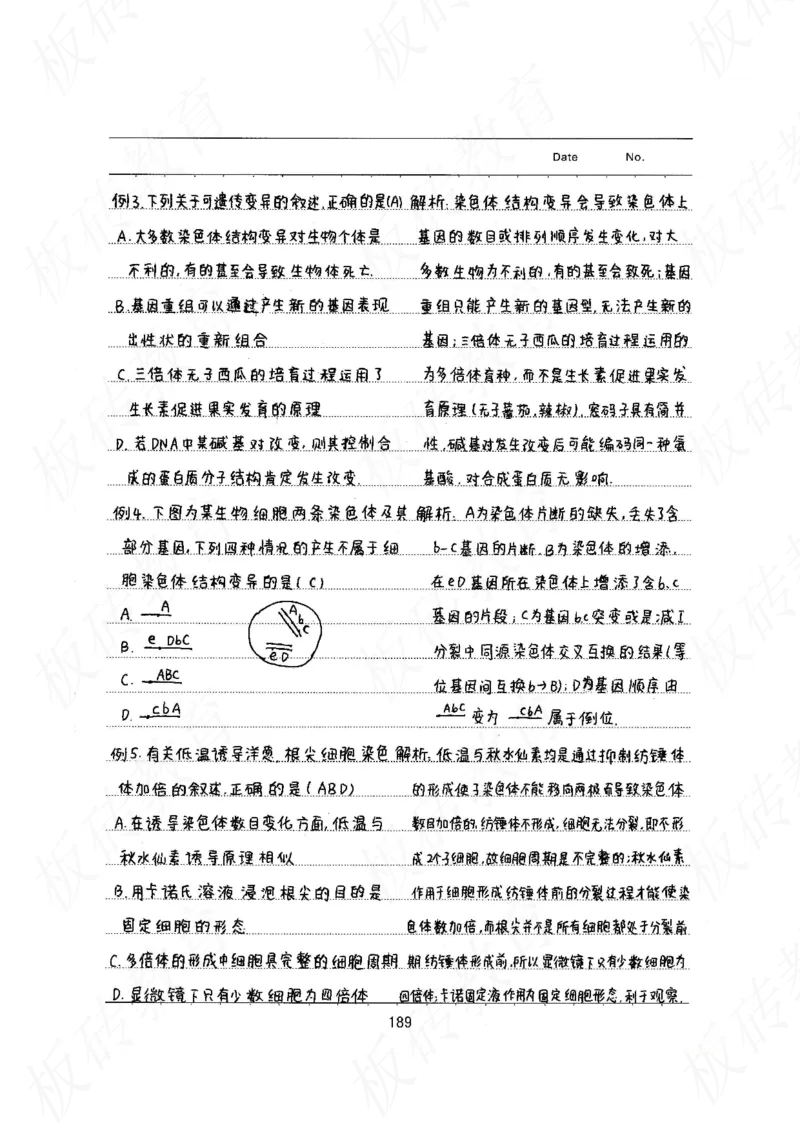 Date No.
例3.下列关于可遗传变异的叙述,正确的是(A)
A.大多数染色体结构变异对生物个体是
不利的,有的甚至会导致生物体死亡.
B.基因重组可以通过产生新的基因表现
出性状的重新组合
C.三倍体无子西瓜的培育过程运用了
生长素促进果实发育的原理
D.若DNA中某碱基对改变,则其控制合
成的蛋白质分子结构肯定发生改变.
解析:染色体结构变异会导致染色体上
基因的数目或排列顺序发生变化,对大
多数生物为不利的,有的甚至会致死;基因
重组只能产生新的基因型,无法产生新的
基因;三倍体无子西瓜的培育过程运用的
为多倍体育种,而不是生长素促进果实发
育原理(无子蕃茄,辣椒).密码子具有简并
性,碱基对发生改变后可能编码同一种氨
基酸,对合成蛋白质无影响.
例4.下图为某生物细胞两条染色体及其
部分基因,下列四种情况的产生不属于细
胞染色体结构变异的是(C)
A. A
B. e DbC
C. ABC
D. cbA
A b c
e D
解析:A为染色体片断的缺失,丢失了含
b-C基因的片断.B为染色体的增添,
在eD基因所在染色体上增添了含b、c
基因的片段;C为基因b、c突变或是减Ⅰ
分裂中同源染色体交叉互换的结果(等
位基因间互换b→B);D为基因顺序由
AbC 变为 cbA 属于倒位.
例5.有关低温诱导洋葱根尖细胞染色
体加倍的叙述,正确的是(ABD)
A.在诱导染色体数目变化方面,低温与
秋水仙素诱导原理相似
B.用卡诺氏溶液浸泡根尖的目的是
固定细胞的形态
C.多倍体的形成中细胞具完整的细胞周期
D.显微镜下只有少数细胞为四倍体
解析:低温与秋水仙素均是通过抑制纺锤体
的形成使子染色体不能移向两极而导致染色体
数目加倍的,纺锤体不形成,细胞无法分裂,即不形
成2个子细胞,故细胞周期是不完整的;秋水仙素
作用于细胞形成纺锤体前的分裂过程才能使染
色体数加倍,而根尖并不是所有细胞都处于分裂前
期纺锤体形成前,所以显微镜下只有少数细胞为
四倍体;卡诺固定液作用为固定细胞形态,利于观察.
189
板砖教育